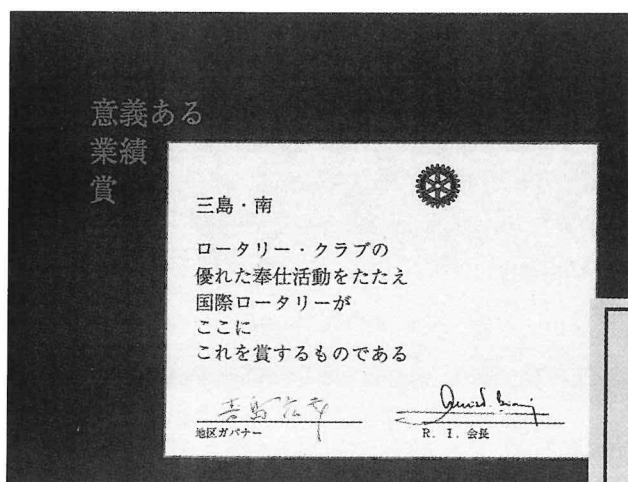 意義ある
業績
賞
三島・南
ロータリー・クラブの
優れた奉仕活動をたたえ
国際ロータリーが
ここに
これを賞するものである
地区ガバナー
R. I. 会長